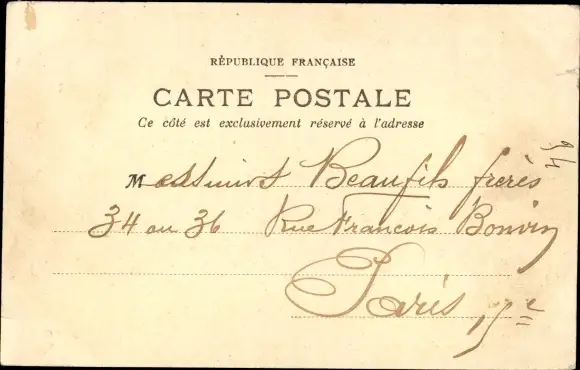 RÉPUBLIQUE FRANÇAISE
CARTE POSTALE
Ce côté est exclusivement réservé à l'adresse
Messieurs Beaufils frères
34 ou 36 Rue François Bonvin
Paris 15e
34